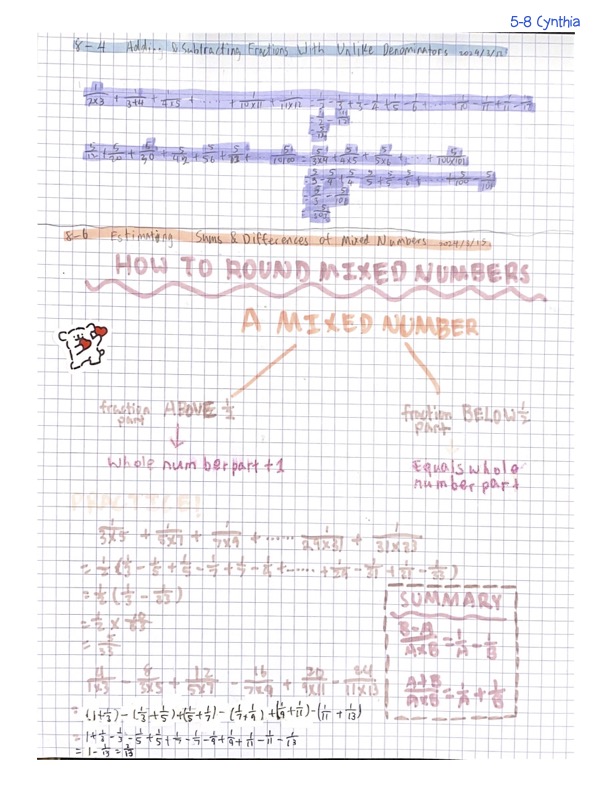 5-8 Cynthia
8-4 Add... & Subtracting Fractions With Unlike Denominators 2024/1/12
1/2x3 + 1/3x4 + 1/4x5 + ...... + 1/10x11 + 1/11x12 = 1/2 - 1/3 + 1/3 - 1/4 + 1/5 - 1/6 + ... 1/10 - 1/11 + 1/11 - 1/12
5/12 + 5/20 + 5/30 + 5/42 + 5/56 + 5/72 + 5/10100 = 5/3x4 + 5/4x5 + 5/5x6 + ... + 5/100x101
8-6 Estimating Sums & Differences of Mixed Numbers 2024/1/15
HOW TO ROUND MIXED NUMBERS
A MIXED NUMBER
fraction part ABOVE 1/2
fraction part BELOW 1/2
whole number part +1
Equals whole number part
PRACTICE!
1/3x5 + 1/5x7 + 1/7x9 + ...... 1/29x31 + 1/31x33
= 1/2 (1/3 - 1/5 + 1/5 - 1/7 + 1/7 - 1/9 + ...... + 1/29 - 1/31 + 1/31 - 1/33)
= 1/2 (1/3 - 1/33)
= 1/2 x 10/33
= 5/33
SUMMARY
B-A/AxB = 1/A - 1/B
A+B/AxB = 1/A + 1/B
4/1x3 - 8/3x5 + 12/5x7 - 16/7x9 + 20/9x11 - 24/11x13
= (1+1/3) - (1/3+1/5) + (1/5+1/7) - (1/7+1/9) + (1/9+1/11) - (1/11+1/13)
= 1+1/3-1/3-1/5+1/5+1/7-1/7-1/9+1/9+1/11-1/11-1/13
= 1-1/13 = 12/13